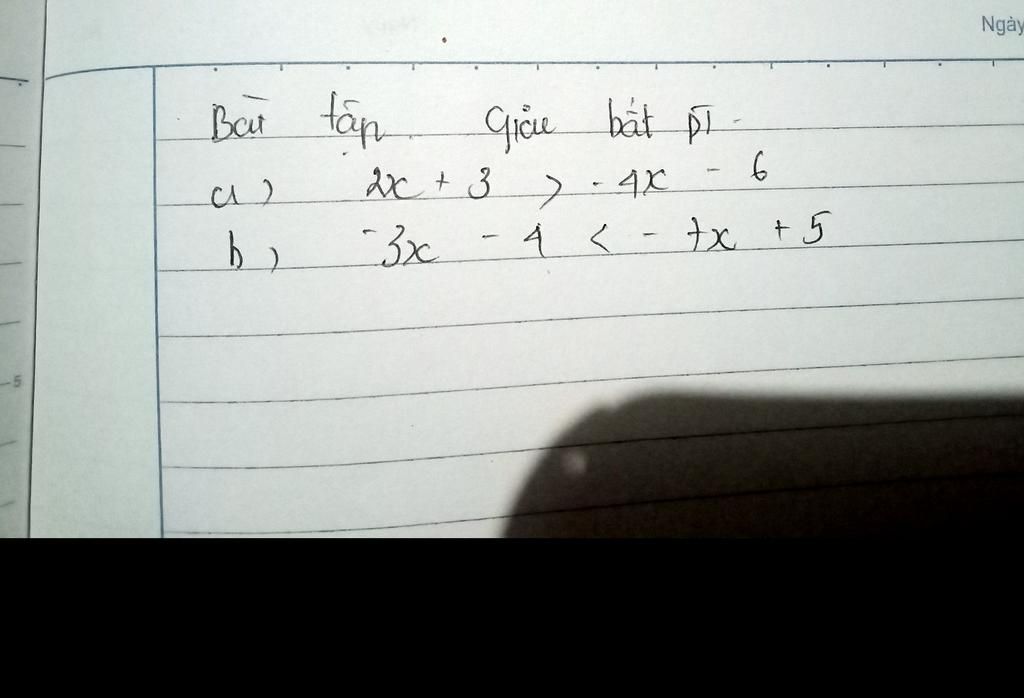 Ngày
Bài tập. Giải bất pт
a) 2x + 3 > - 4x - 6
b) -3x - 4 < - 7x + 5
5